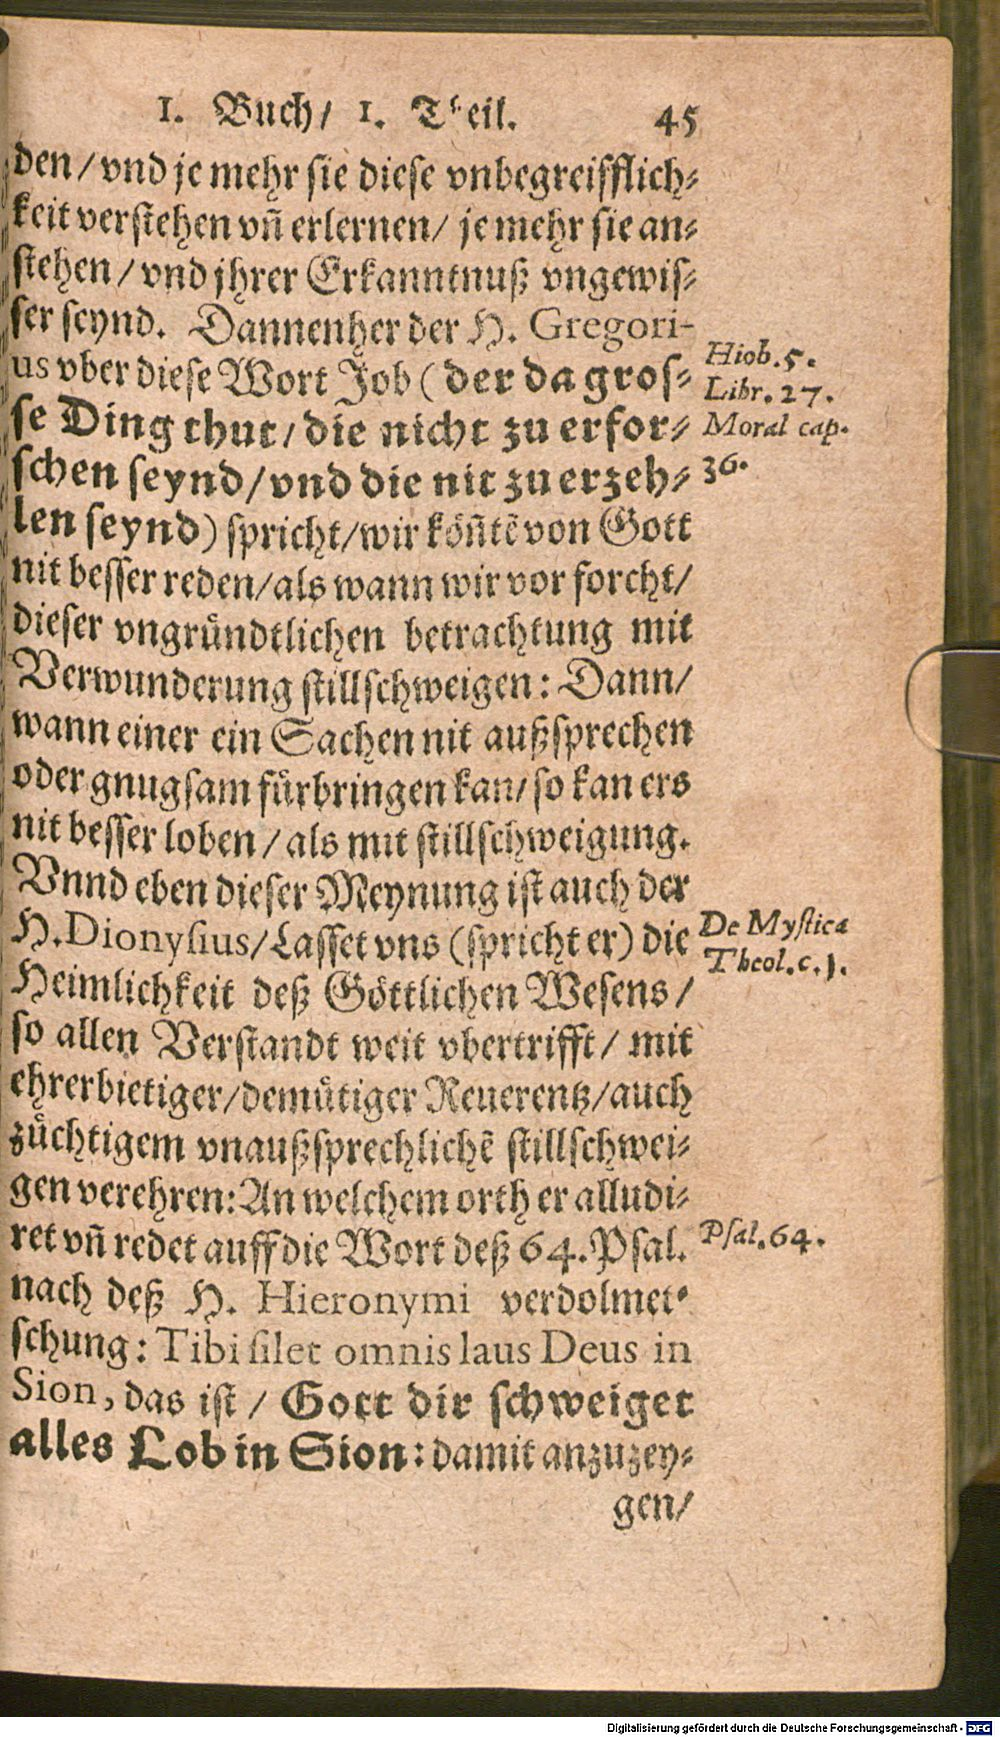 1. Buch/ 1. Theil. 45
den/vnd je mehr sie diese vnbegreifflich-
keit verstehen vñ erlernen/ je mehr sie an-
stehen/vnd jhrer Erkanntnuß vngewis-
ser seynd. Dannenher der H. Gregori-
us vber diese Wort Job (der da gros-
Hiob.5.
Libr.27.
se Ding thut/die nicht zu erfor-
Moral cap.
schen seynd/vnd die nit zu erzeh-
36.
len seynd) spricht/wir köñtẽ von Gott
nit besser reden/als wann wir vor forcht/
dieser vngründtlichen betrachtung mit
Verwunderung stillschweigen: Dann/
wann einer ein Sachen nit außsprechen
oder gnugsam fürbringen kan/so kan ers
nit besser loben/als mit stillschweigung.
Vnnd eben dieser Meynung ist auch der
H.Dionysius/Lasset vns (spricht er) die
De Mystica
Heimlichkeit deß Göttlichen Wesens/
Theol.c.1.
so allen Verstandt weit vbertrifft/ mit
ehrerbietiger/demütiger Reuerentz/auch
züchtigem vnaußsprechlichẽ stillschwei-
gen verehren:An welchem orth er alludi-
ret vñ redet auff die Wort deß 64.Psal.
Psal.64.
nach deß H. Hieronymi verdolmet-
schung: Tibi silet omnis laus Deus in
Sion, das ist/ Gott dir schweiget
alles Lob in Sion: damit anzuzey-
gen/
Digitalisierung gefördert durch die Deutsche Forschungsgemeinschaft - DFG